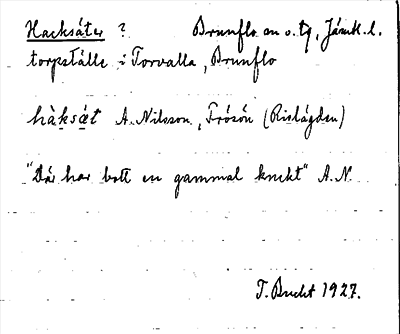 Hacksäter ? Brunflo sn o. tg, Jämtl. l.
torpställe i Torvalla, Brunflo
hàksæ̀t A. Nilsson, Frösön (Rislägden)
"Där har bott en gammal knekt" A.N.
T. Bucht 1927.